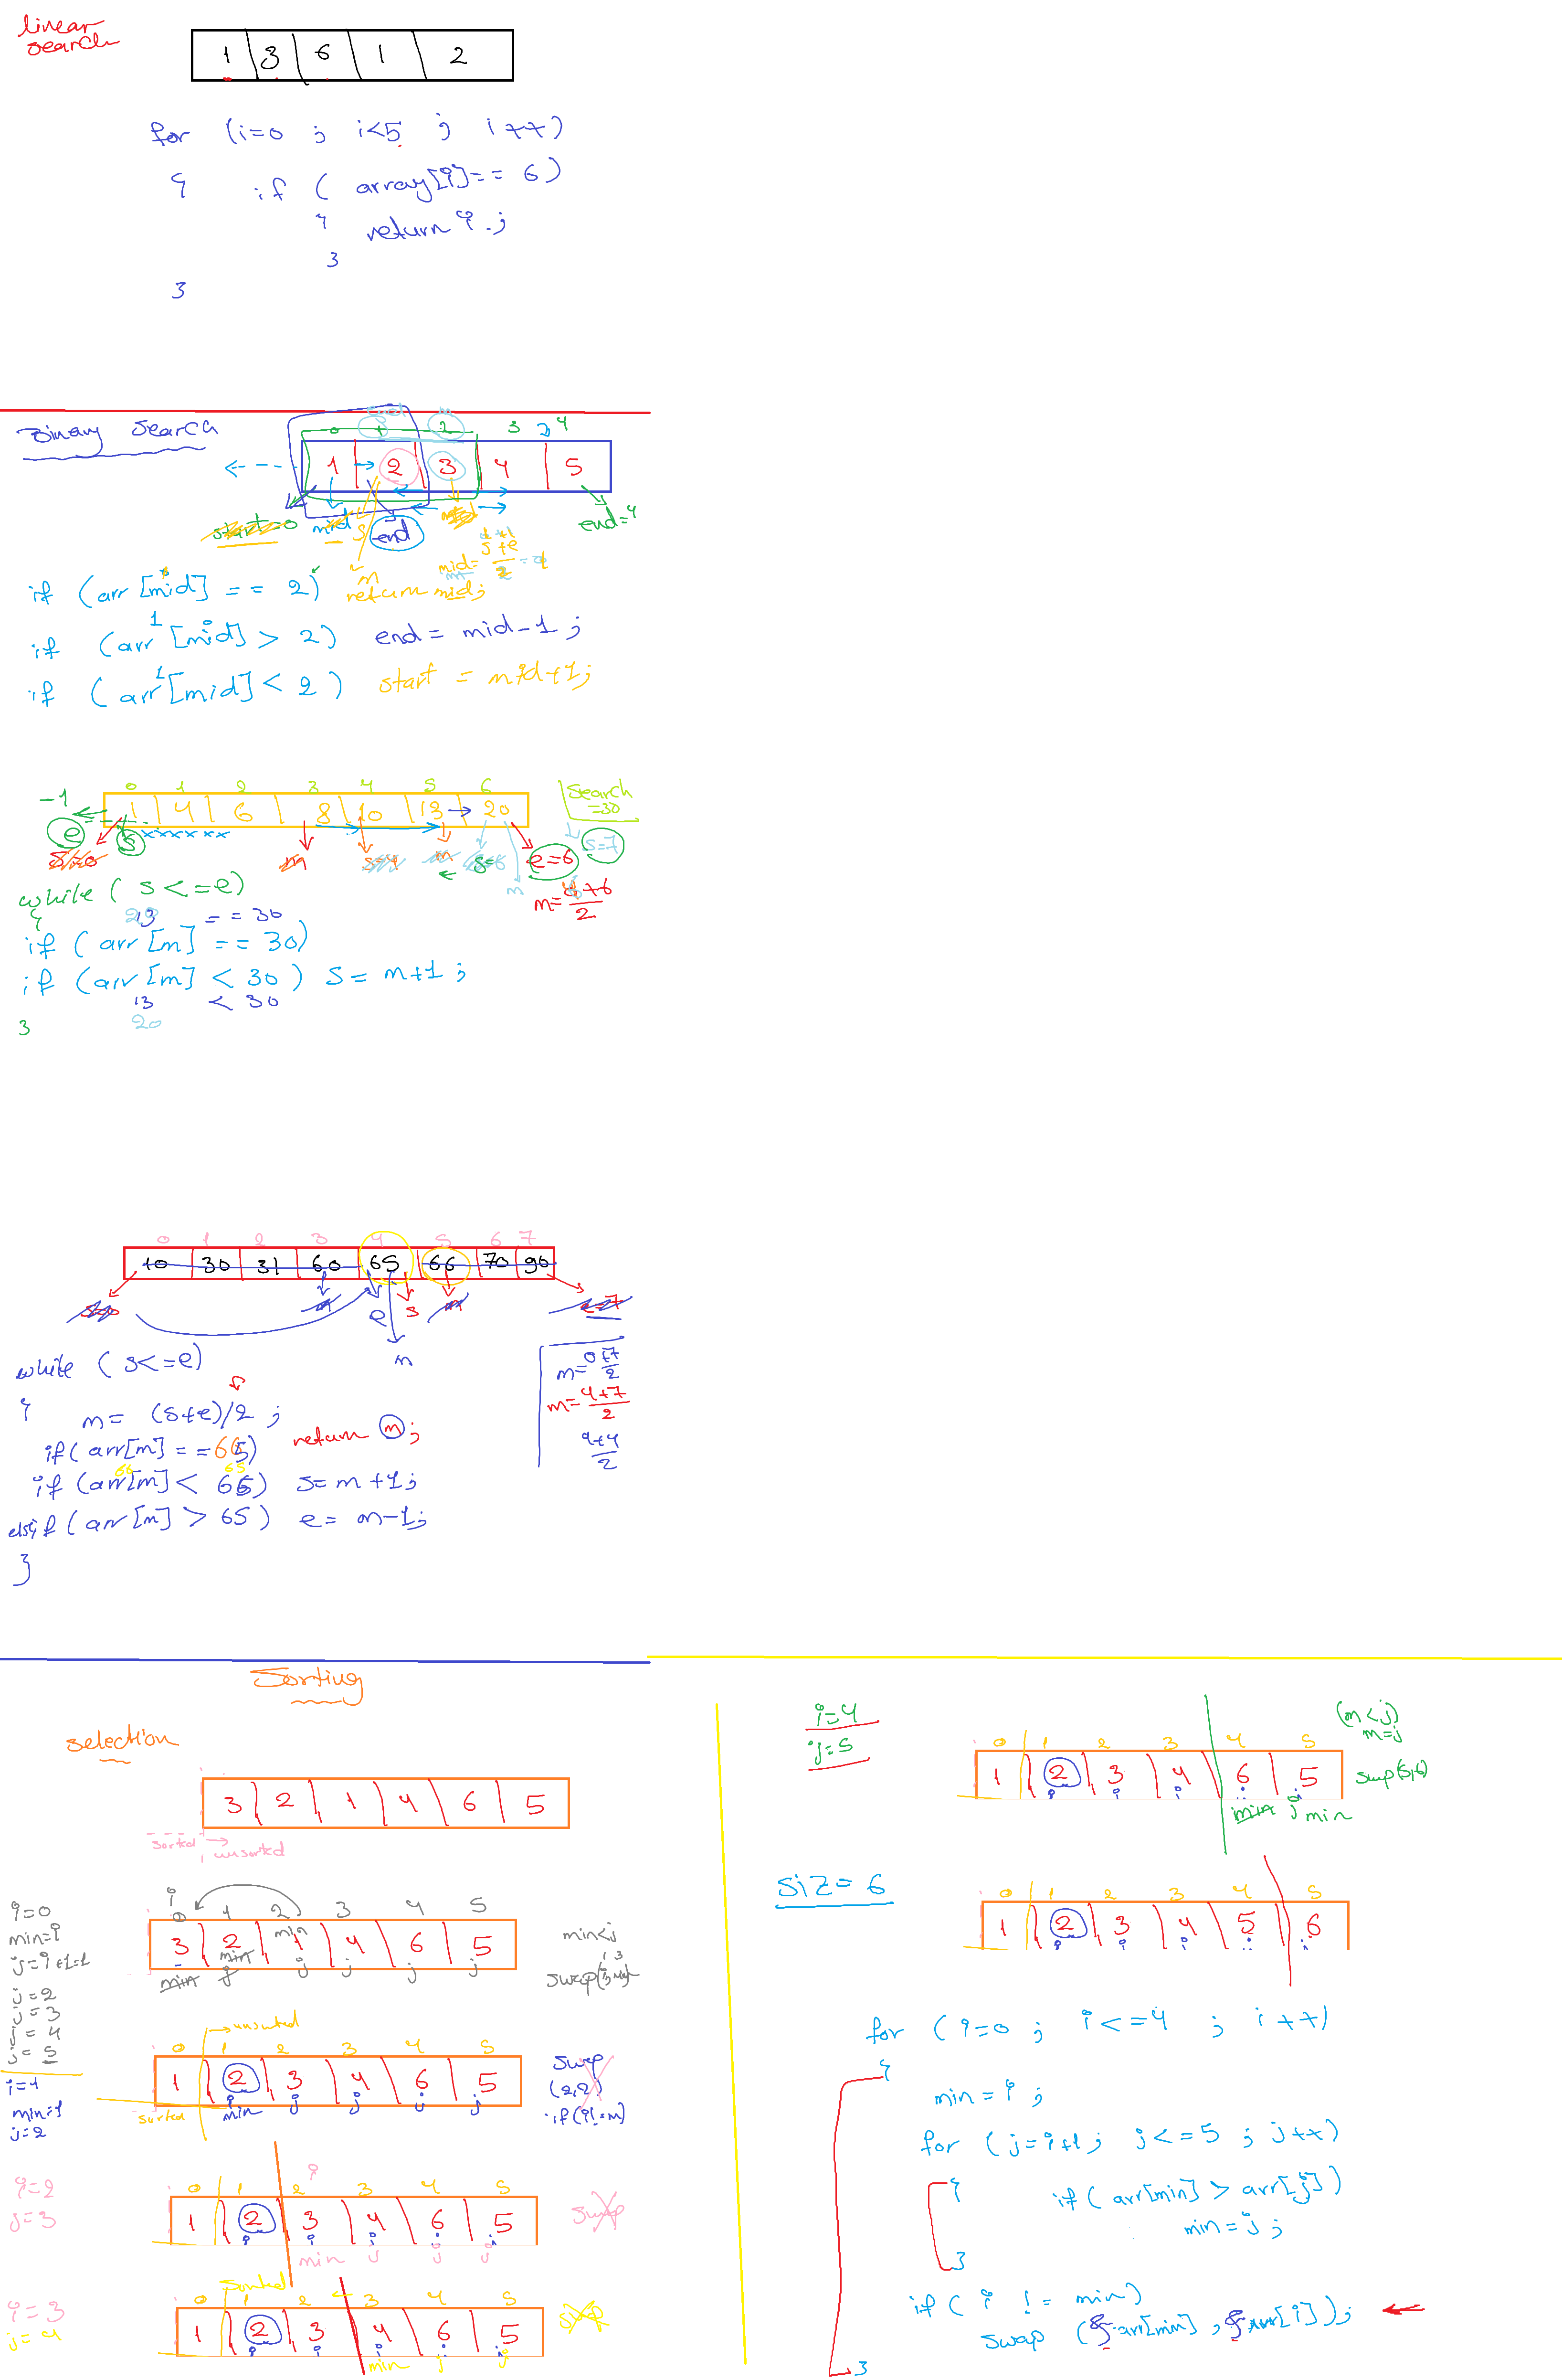 linear
search
1 3 6 1 2
for (i=0 ; i<5 ; i++)
{ if ( array[i]== 6)
{ return i ;
}
}
Binary Search
0 1 2 3 4
1 2 3 4 5
start=0 mid s end end=4
mid= s+e
2
m
if (arr[mid] == 2) return mid;
if (arr[mid] > 2) end = mid-1 ;
if (arr[mid] < 2) start = mid+1;
0 1 2 3 4 5 6
-1
1 4 6 8 10 13 20
Search
=30
e s
s=0 m s=4 m s=6 e=6 s=7
m
m= 6+6
2
while ( s<=e)
{
13 == 30
if (arr [m] == 30)
if (arr [m] < 30) s= m+1 ;
13 < 30
20
}
0 1 2 3 4 5 6 7
10 30 31 60 65 66 70 90
s=0 m e s m e=7
m
while ( s<=e)
{ m= (s+e)/2 ;
if( arr[m] == 65) return m;
66 65
if (arr[m] < 65) s= m+1;
elsif ( arr [m] > 65) e= m-1;
}
m= 0+7
2
m= 4+7
2
4+4
2
Sorting
selection
3 2 1 4 6 5
sorted unsorted
i=0
min=i
j=i+1=1
j=2
j=3
j=4
j=5
i
0 1 2 3 4 5
3 2 1 4 6 5
min min min
j j j j j
min<j
1 3
i=1
min=1
j=2
unsorted
0 1 2 3 4 5
1 2 3 4 6 5
sorted
i min j j j j
swap
(2,2)
if(i!=m)
i=2
j=3
i
0 1 2 3 4 5
1 2 3 4 6 5
min j j j
swap
i=3
j=4
sorted
0 1 2 3 4 5
1 2 3 4 6 5
min j j
swap
i=4
j=5
0 1 2 3 4 5
1 2 3 4 6 5
min j min
(m<j)
m=j
swp(5,6)
siz= 6
0 1 2 3 4 5
1 2 3 4 5 6
for (i=0 ; i<=4 ; i++)
{
min = i ;
for (j=i+1 ; j<=5 ; j++)
{ if( arr[min] > arr[j])
min = j ;
}
if( i != min)
swap (&arr[min] , &arr[i]);
}